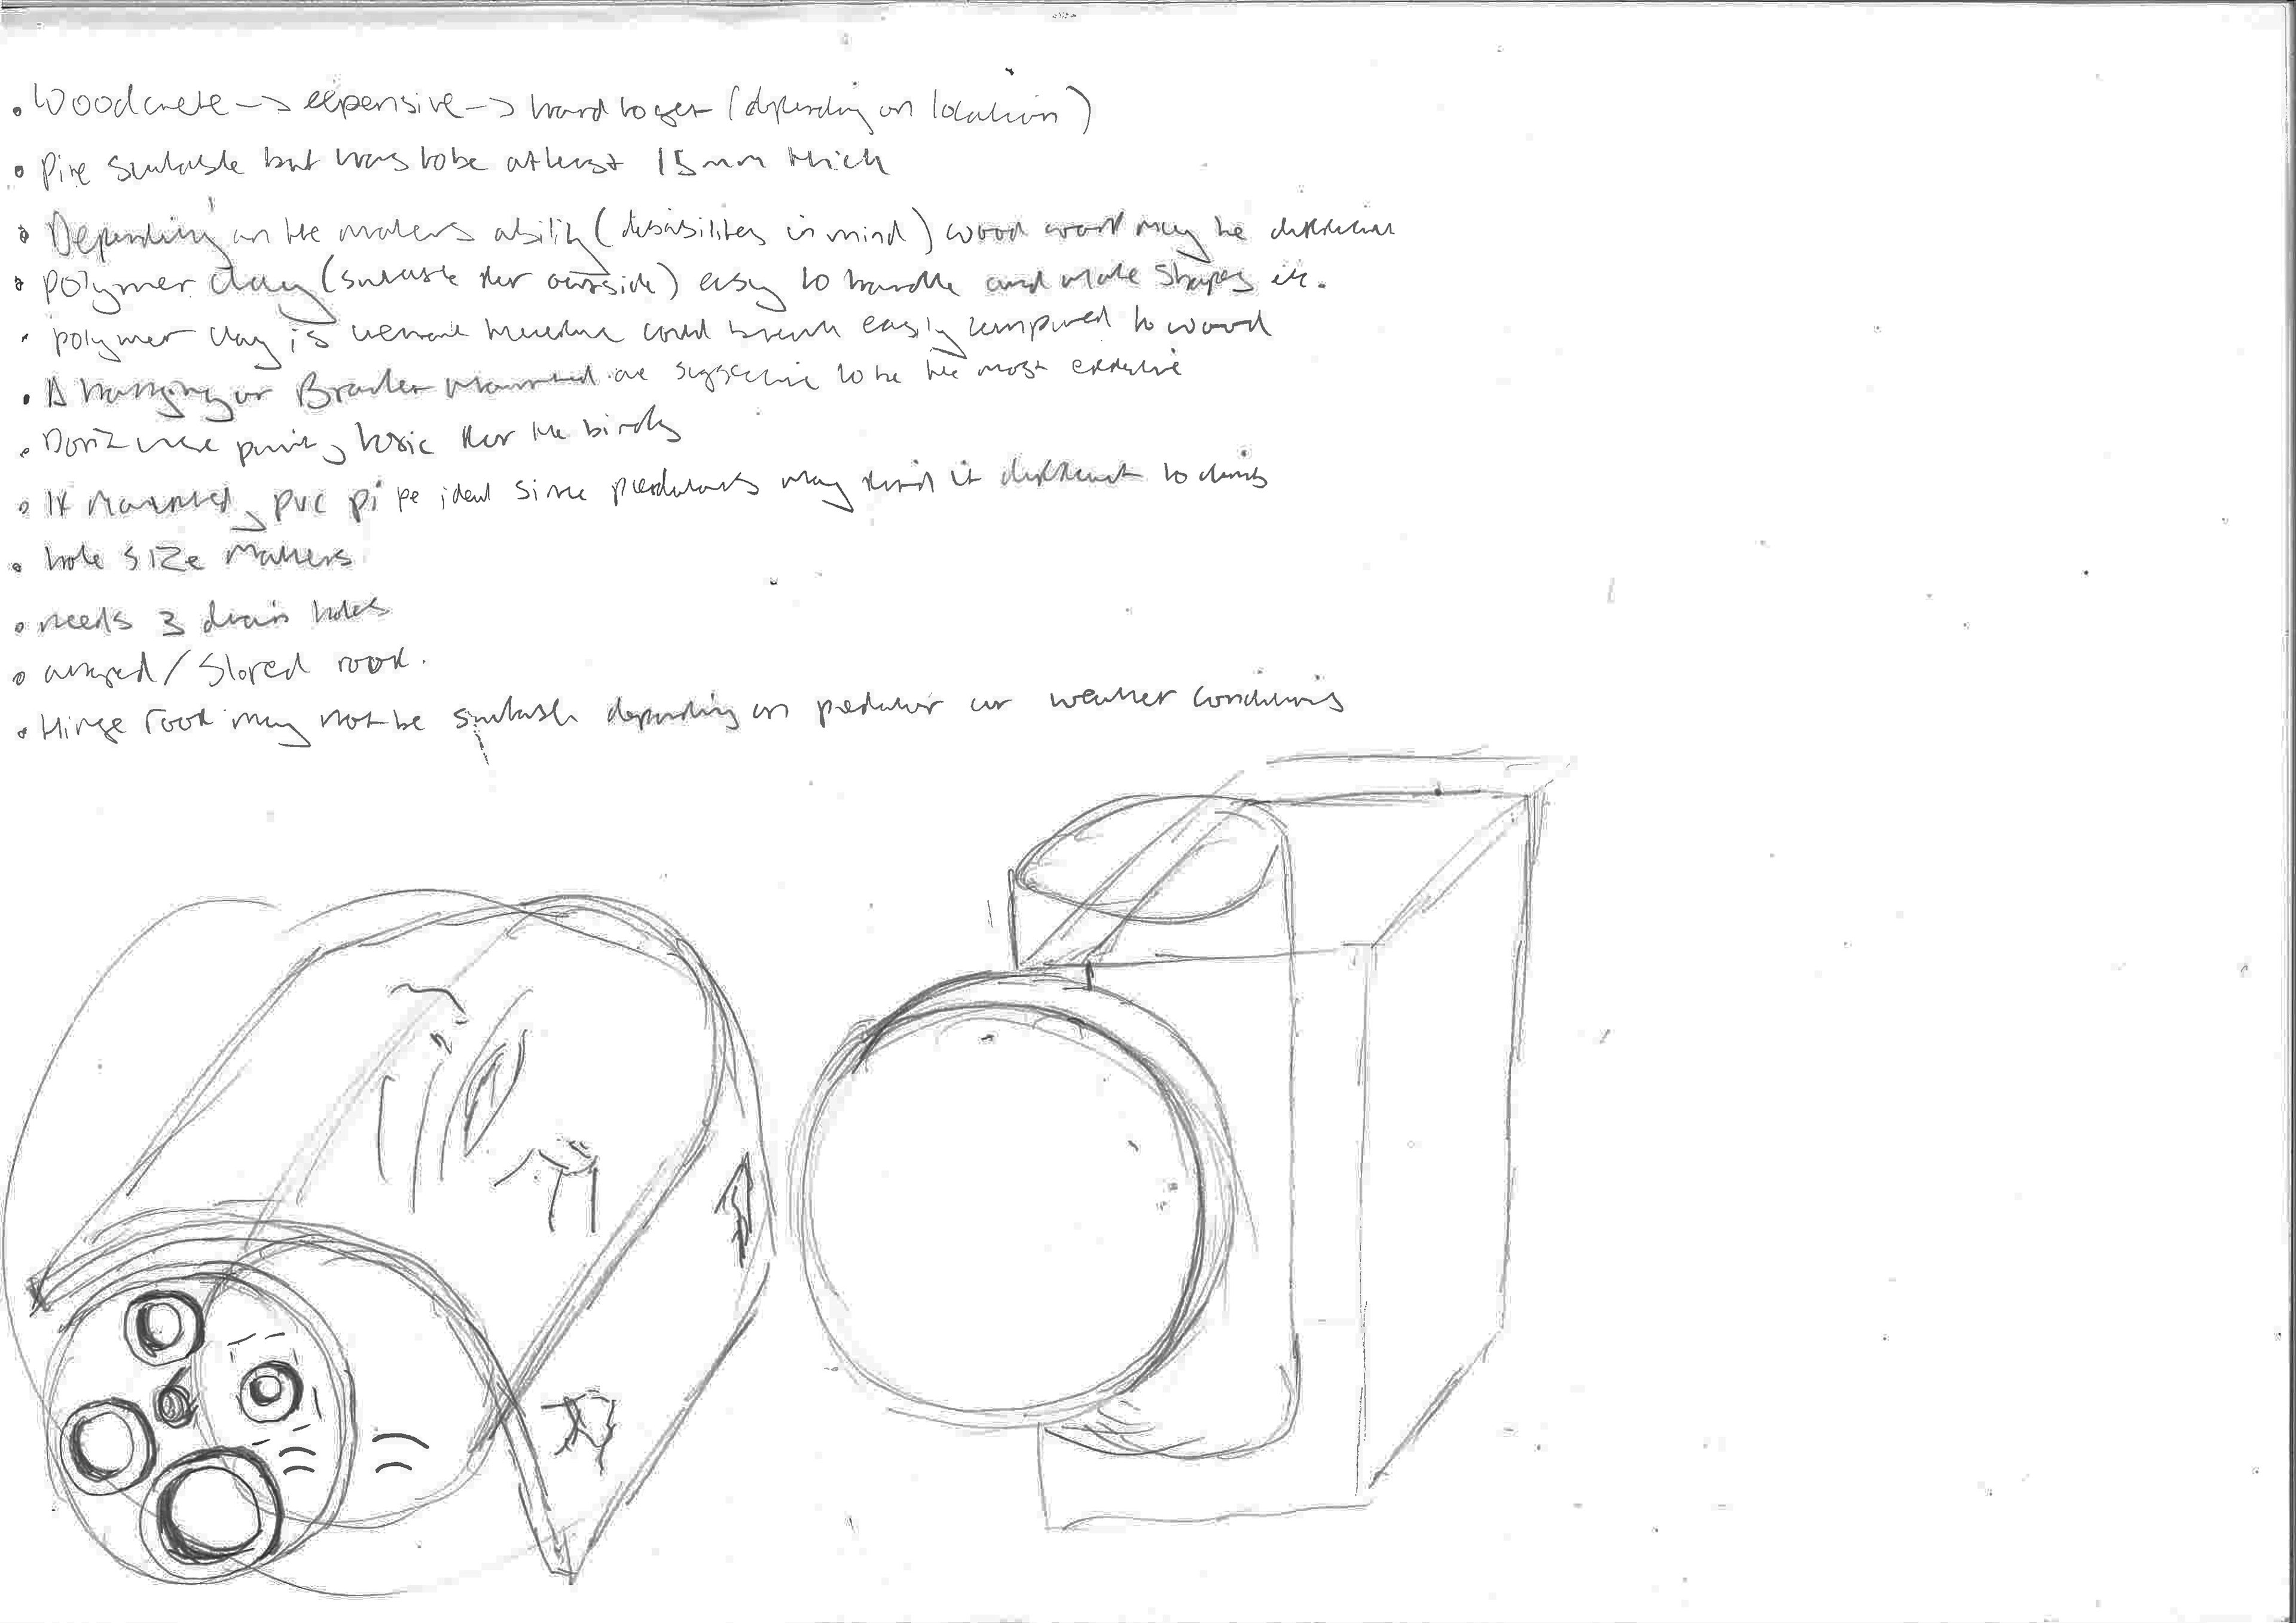 • Woodcrete -> expensive -> hard to get (depending on location)
• Pine suitable but has to be atleast 15mm thick
• Depending on the makers ability (disabilities in mind) wood work may be difficult
• polymer clay (suitable for outside) easy to handle and make shapes etc.
• polymer clay is could break easily compared to wood
• A hanging or Bracket mounted are to be the most effective
• Don't use paint, toxic for the birds
• If Mounted, pvc pipe ideal since predators may find it difficult to climb
• hole size matters
• needs 3 drain holes
• / Sloped roof.
• Hinge roof may not be suitable depending on predator or weather conditions